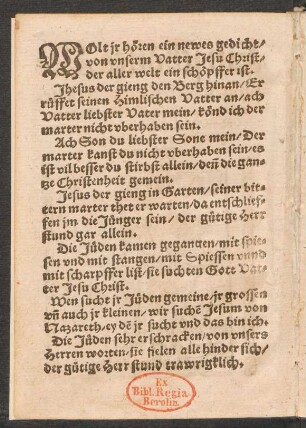 WOlt jr hören ein newes gedicht/
von vnserm Vatter Jesu Christ/
der aller welt ein schöpffer ist.
Jhesus der gieng den Berg hinan/ Er
rüffet seinen Himlischen Vatter an/ach
Vatter liebster Vater mein/ könd ich der
marter nicht vberhaben sein.
Ach Son du liebster Sone mein/ Der
marter kanst du nicht vberhaben sein/es
ist vil besser du stirbst allein/ deñ die gan-
tze Christenheit gemein.
Jesus der gieng in Garten/ seiner bit-
tern marter thet er warten/da entschlief-
fen jm die Jünger sein/ der gütige Herr
stund gar allein.
Die Jüden kamen gegangen/mit spies-
sen vnd mit stangen/mit Spiessen vnnd
mit scharpffer list/sie suchten Gott Vat-
ter Jesu Christ.
Wen sucht jr Jüden gemeine/jr grossen
vñ auch jr kleinen/ wir suchẽ Jesum von
Nazareth/ey dẽ jr sucht vnd das bin ich.
Die Jüden sehr erschracken/von vnsers
Herren worten/sie fielen alle hinder sich/
der gütige Herr stund trawrigklich.
Ex
Bibl. Regia
Berolin.